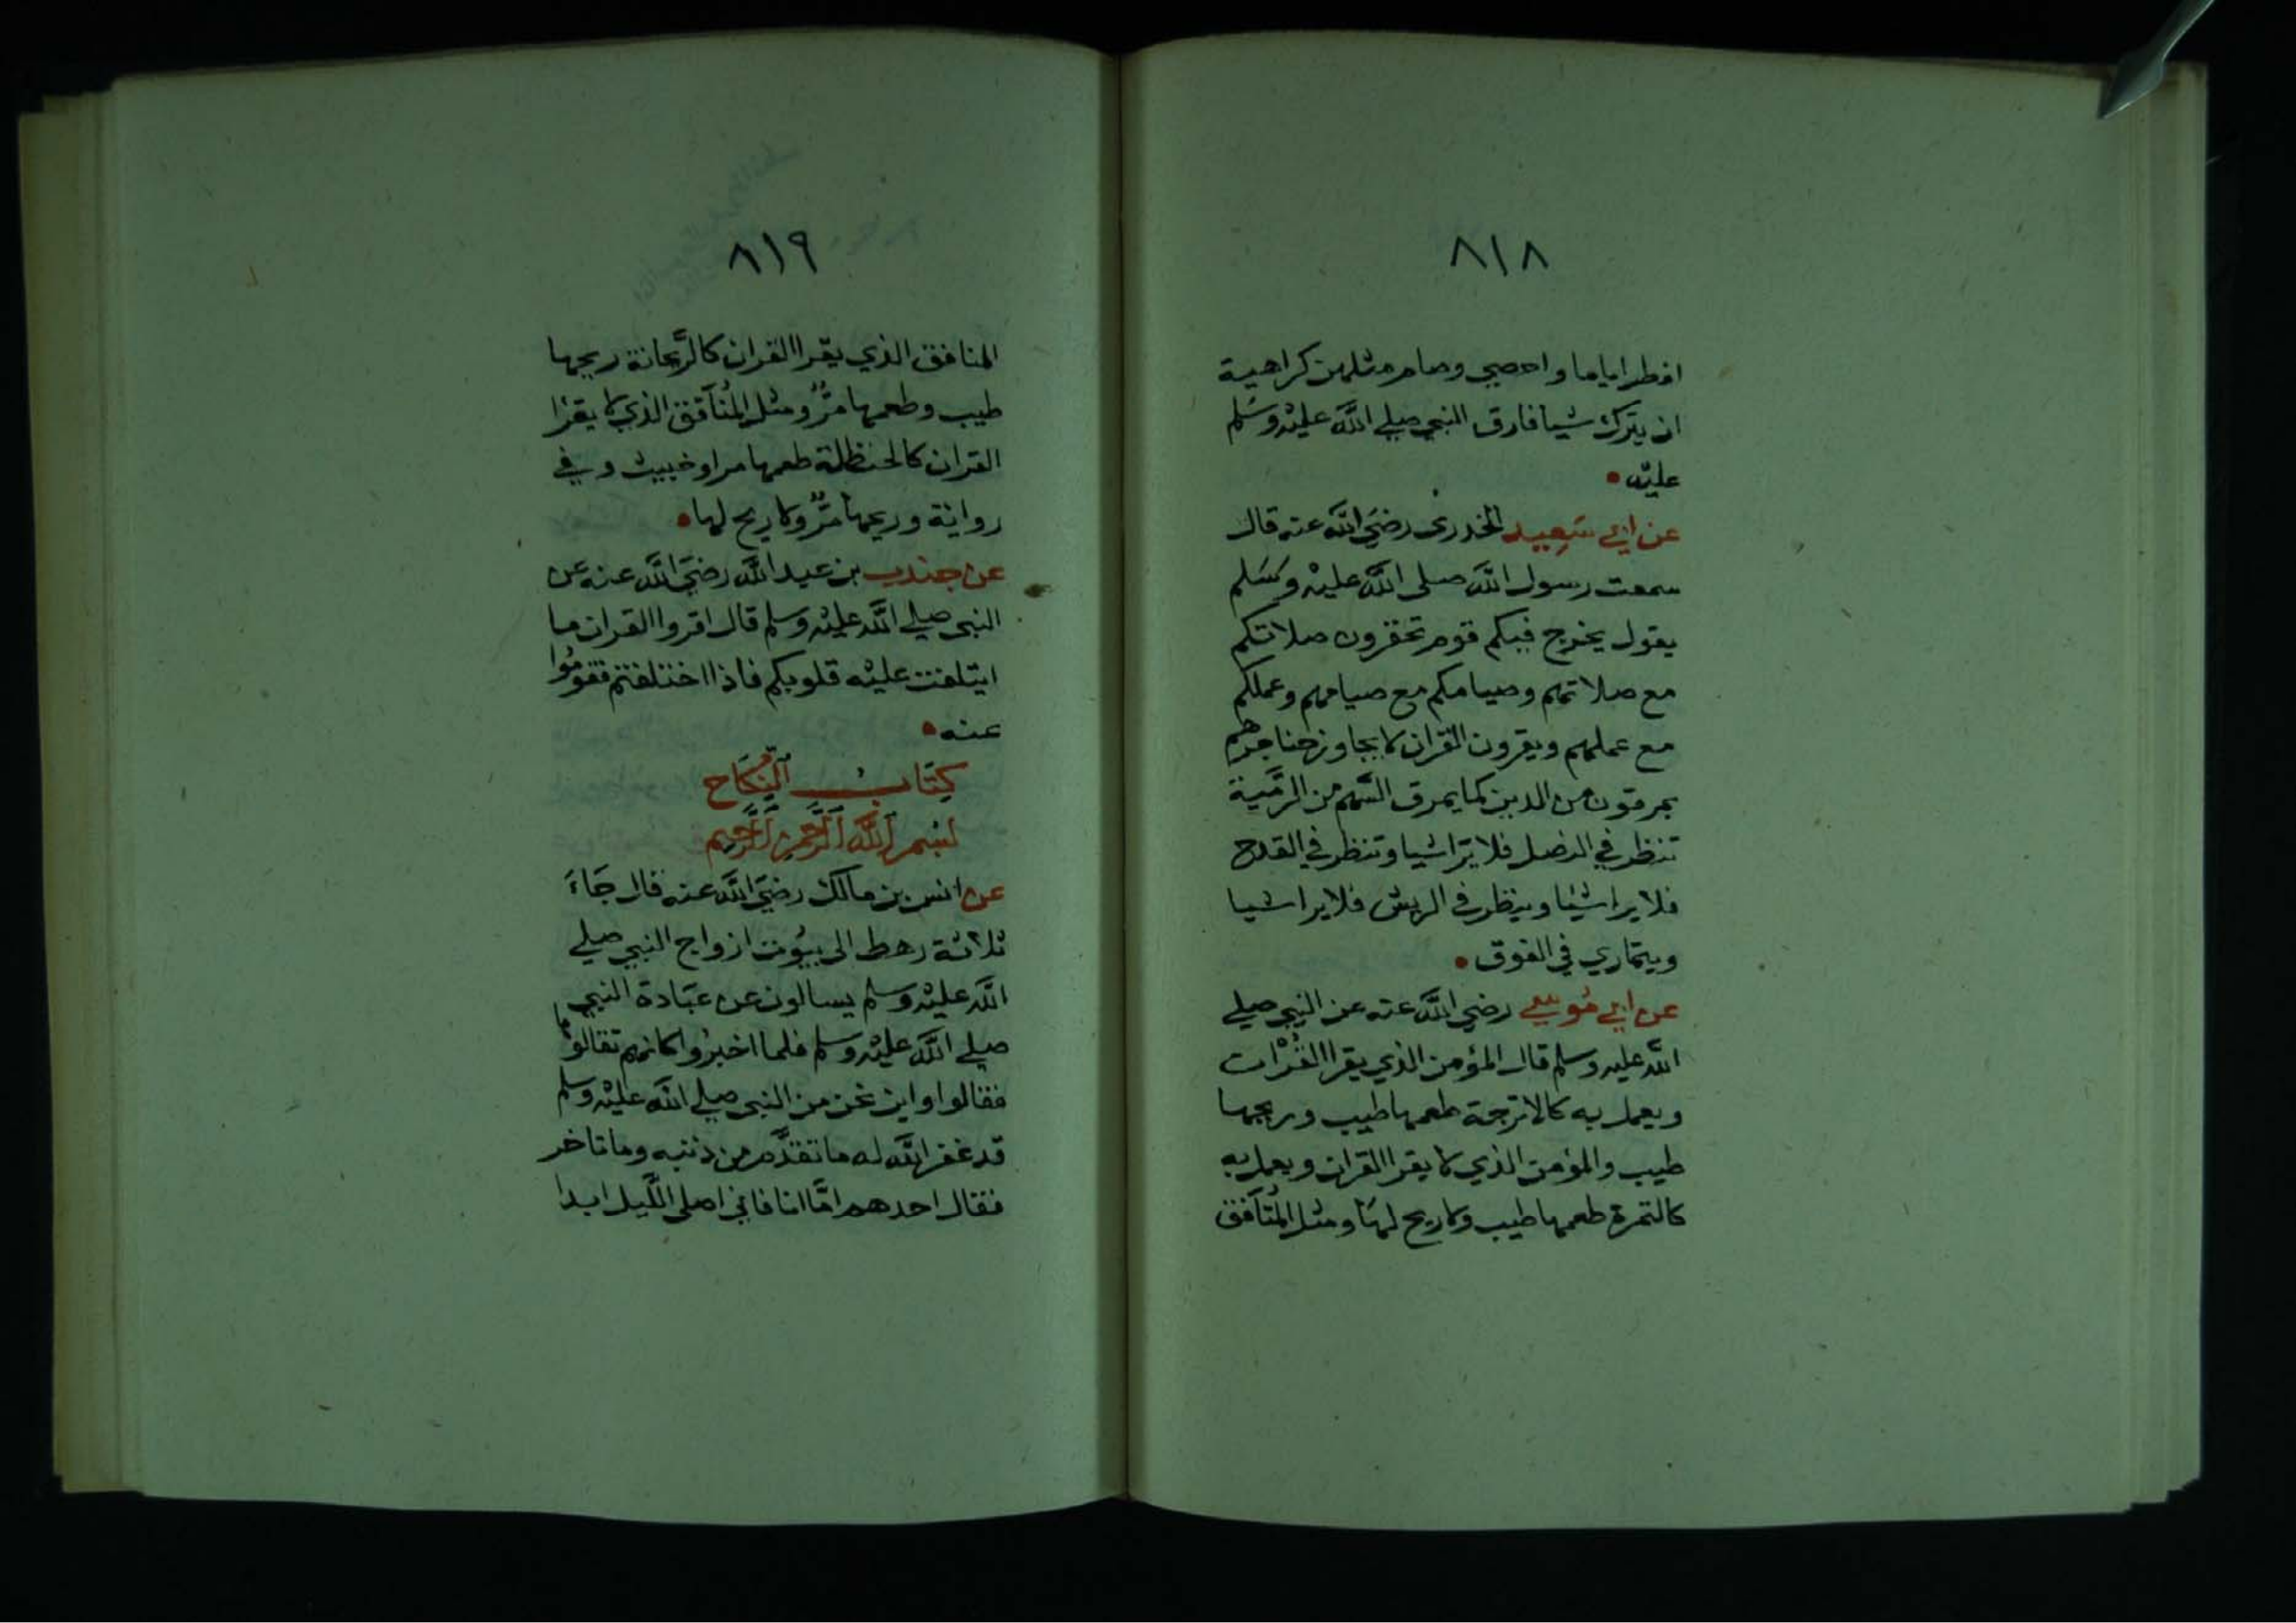 ٨١٨
افطر اياما واحصي وصام مثلهن كراهية
ان يترك شيا فارق النبي صلي الله عليه وسلم
عليه
عن ابي سعيد الخدرى رضي الله عنه قال
سمعت رسول الله صلى الله عليه وسلم
يقول يخرج فيكم قوم تحقرون صلاتكم
مع صلاتهم وصيامكم مع صيامهم وعملكم
مع عملهم ويقرون القران لا يجاوز حناجرهم
يمرقون من الدين كما يمرق السهم من الرمية
تنظر في النصل فلا ترا شيا وتنظر في القدح
فلا يرا شيا وينظر في الريش فلا يرا شيا
ويتماري في الفوق
عن ابي موسي رضي الله عنه عن النبي صلي
الله عليه وسلم قال المؤمن الذي يقرا القران
ويعمل به كالاترجة طعمها طيب وريحها
طيب والمؤمن الذي لا يقرا القران ويعمل به
كالتمرة طعمها طيب ولا ريح لها ومثل المنافق
٨١٩
المنافق الذي يقرا القران كالريحانة ريحها
طيب وطعمها مر ومثل المنافق الذي لا يقرا
القران كالحنظلة طعمها مر او خبيث وفي
رواية وريحها مر ولا ريح لها
عن جندب بن عبد الله رضي الله عنه عن
النبي صلي الله عليه وسلم قال اقروا القران ما
ايتلفت عليه قلوبكم فاذا اختلفتم فقوموا
عنه
كتاب النكاح
بسم الله الرحمن الرحيم
عن انس بن مالك رضي الله عنه قال جاء
ثلاثة رهط الى بيوت ازواج النبي صلي
الله عليه وسلم يسالون عن عبادة النبي
صلي الله عليه وسلم فلما اخبروا كانهم تقالوها
فقالوا واين نحن من النبي صلي الله عليه وسلم
قد غفر الله له ما تقدم من ذنبه وما تاخر
فقال احدهم اما انا فاني اصلي الليل ابدا